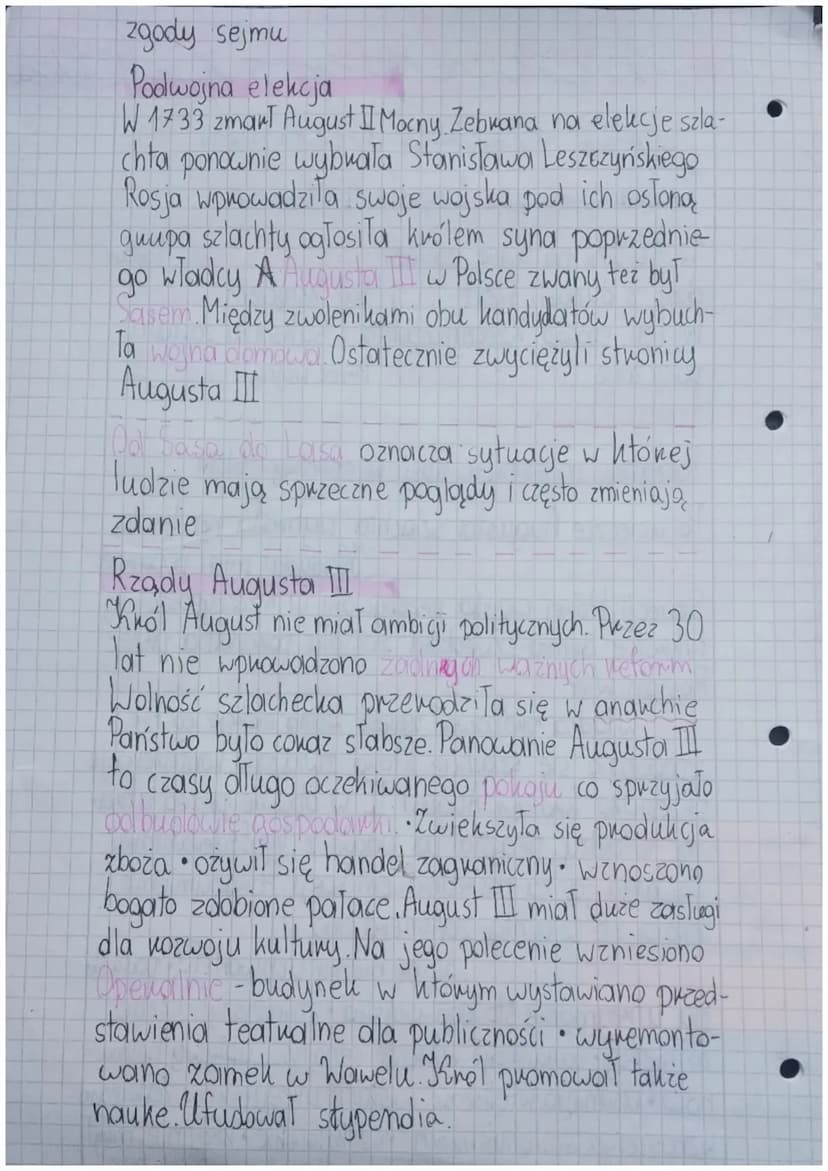 zgody sejmu
Podwojna elekcja
W 1733 zmarł August II Mocny. Zebrana na elekcje szla-
chta ponownie wybrała Stanisława Leszczyńskiego
Rosja wprowadziła swoje wojska pod ich osłoną
grupa szlachty ogłosiła królem syna poprzednie-
go władcy A Augusta III w Polsce zwany też był
Sasem. Między zwolenikami obu kandydatów wybuch-
ła wojna domowa. Ostatecznie zwyciężyli stronicy
Augusta III
Od Sasa do Lasa oznacza sytuacje w której
ludzie mają sprzeczne poglądy i często zmieniają
zdanie
Rządy Augusta III
Król August nie miał ambicji politycznych. Przez 30
lat nie wprowadzono żadnych ważnych reform
Wolność szlachecka przerodziła się w anarchie
Państwo było coraz słabsze. Panowanie Augusta III
to czasy długo oczekiwanego pokoju co sprzyjało
odbudowie gospodarki. • Zwiekszyła się produkcja
zboża • ożywił się handel zagraniczny • wznoszono
bogato zdobione pałace. August III miał duże zasługi
dla rozwoju kultury. Na jego polecenie wzniesiono
Operalnie - budynek w którym wystawiano przed-
stawienia teatralne dla publiczności • wyremonto-
wano zamek w Wawelu. Król promował także
nauke. Ufudował stypendia.